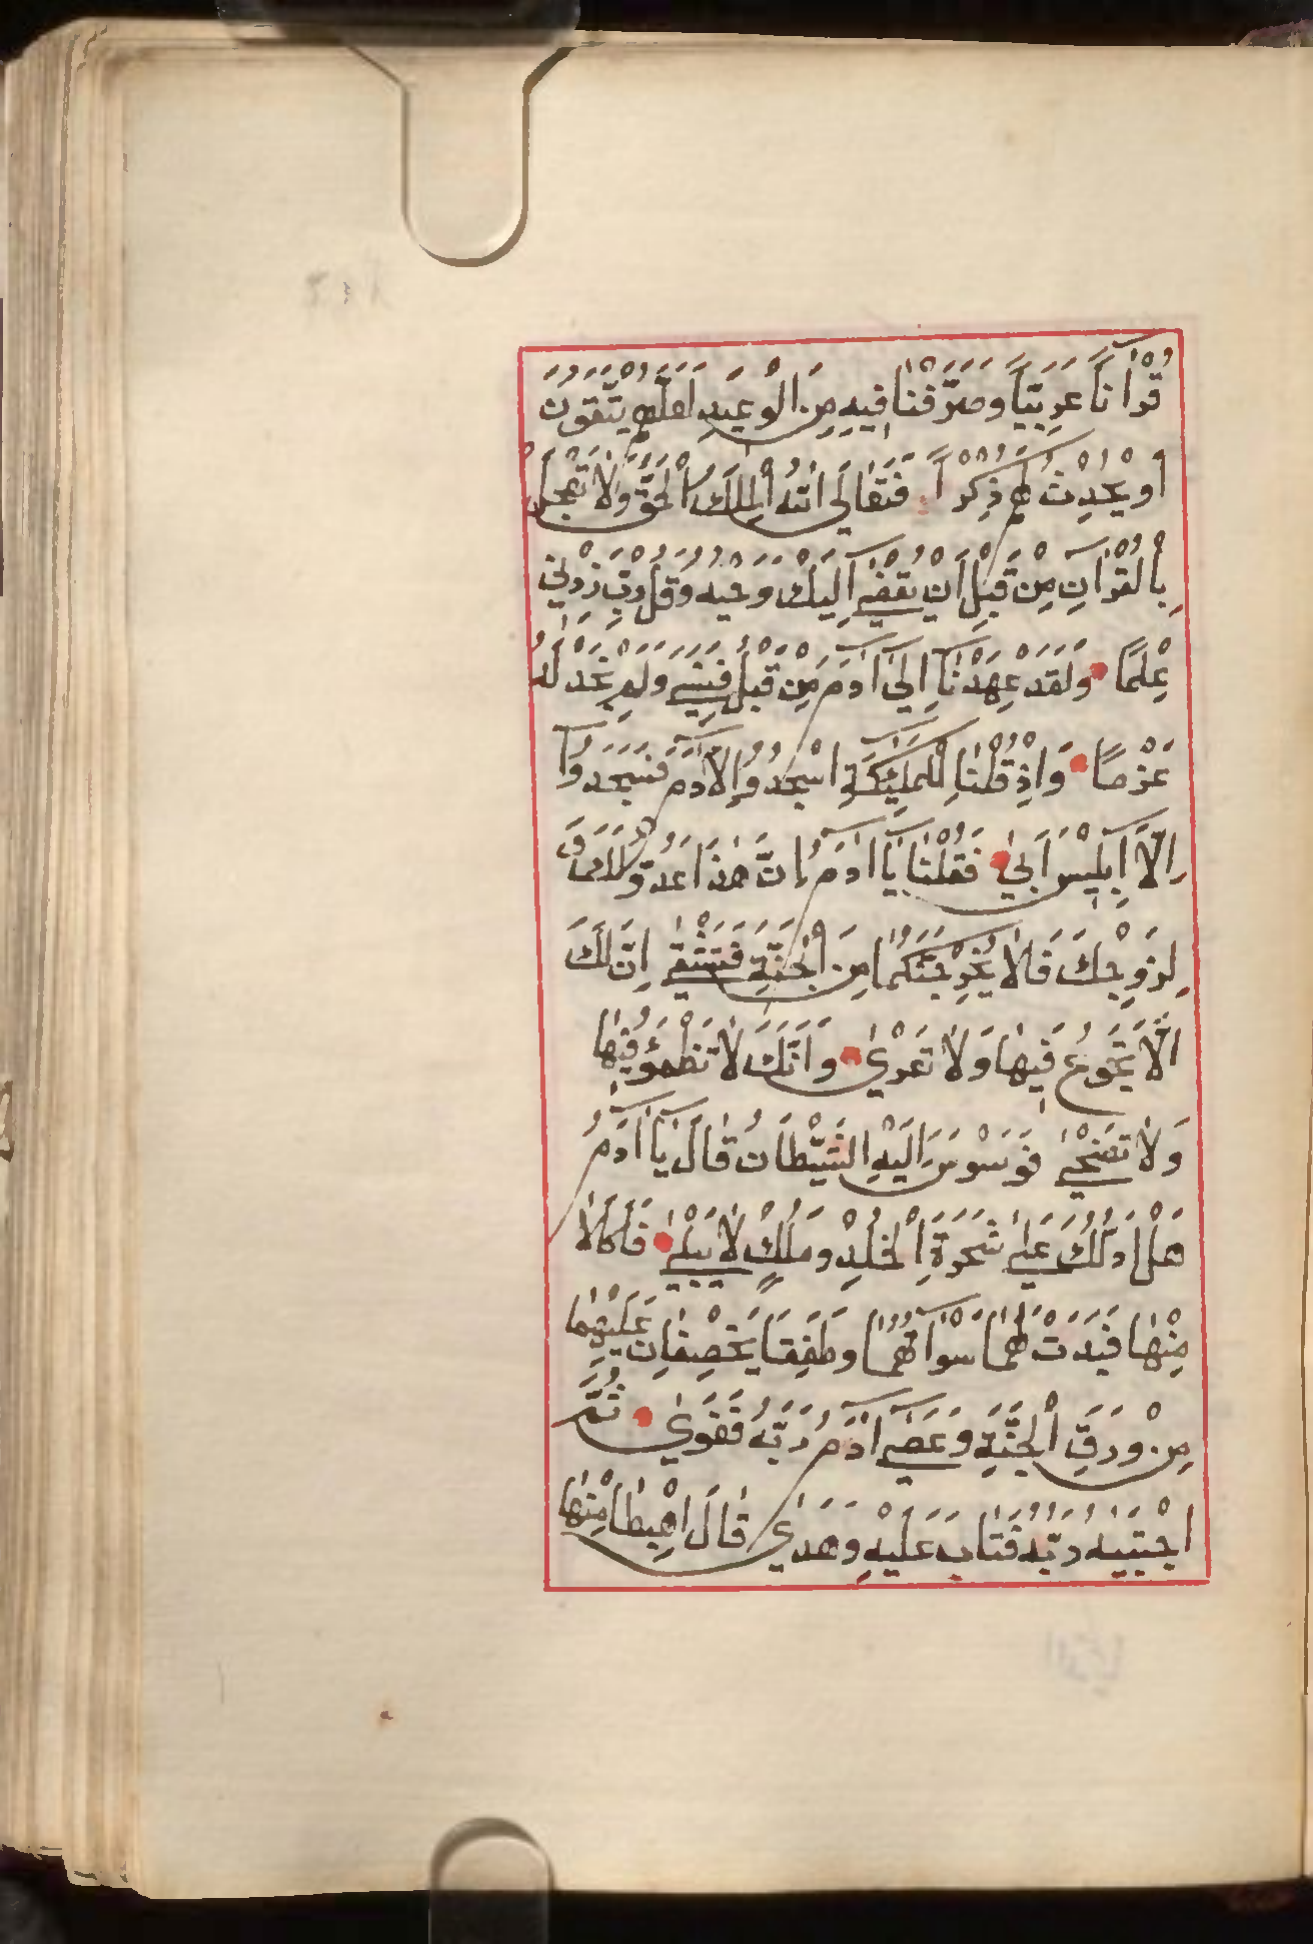 قُرْاٰناً عَرَبِيّاً وصَرَّفْنٰا فِيهِ مِنَ الْوَعِيدِ لَعَلَّهُمْ يَتَّقُونَ
اَوْ يُحْدِثُ لَهُمْ ذِكْراً فَتَعٰالَى اللّٰهُ الْمَلِكُ الْحَقُّ وَلاٰ تَعْجَلْ
بِالْقُرْاٰنِ مِنْ قَبْلِ اَنْ يُقْضٰى اِلَيْكَ وَحْيُهُ وَقُلْ رَبِّ زِدْنِي
عِلْمًا وَلَقَدْ عَهِدْنٰا اِلٰى اٰدَمَ مِنْ قَبْلُ فَنَسِيَ وَلَمْ نَجِدْ لَهُ
عَزْمًا وَاِذْ قُلْنٰا لِلْمَلٰئِكَةِ اسْجُدُوا لِاٰدَمَ فَسَجَدُوا
اِلّٰا اِبْلِيسَ اَبٰى فَقُلْنٰا يٰا اٰدَمُ اِنَّ هٰذَا عَدُوٌّ لَكَ وَ
لِزَوْجِكَ فَلاٰ يُخْرِجَنَّكُمٰا مِنَ الْجَنَّةِ فَتَشْقٰى اِنَّ لَكَ
اَلّٰا تَجُوعَ فِيهٰا وَلاٰ تَعْرٰى وَاَنَّكَ لاٰ تَظْمَؤُ فِيهٰا
وَلاٰ تَضْحٰى فَوَسْوَسَ اِلَيْهِ الشَّيْطٰانُ قٰالَ يٰا اٰدَمُ
هَلْ اَدُلُّكَ عَلٰى شَجَرَةِ الْخُلْدِ وَمُلْكٍ لاٰ يَبْلٰى فَاَكَلاٰ
مِنْهٰا فَبَدَتْ لَهُمٰا سَوْاٰتُهُمٰا وطَفِقٰا يَخْصِفٰانِ عَلَيْهِمٰا
مِنْ وَرَقِ الْجَنَّةِ وَعَصٰى اٰدَمُ رَبَّهُ فَغَوٰى ثُمَّ
اجْتَبٰيهُ رَبُّهُ فَتٰابَ عَلَيْهِ وهَدٰى قٰالَ اهْبِطٰا مِنْهٰا